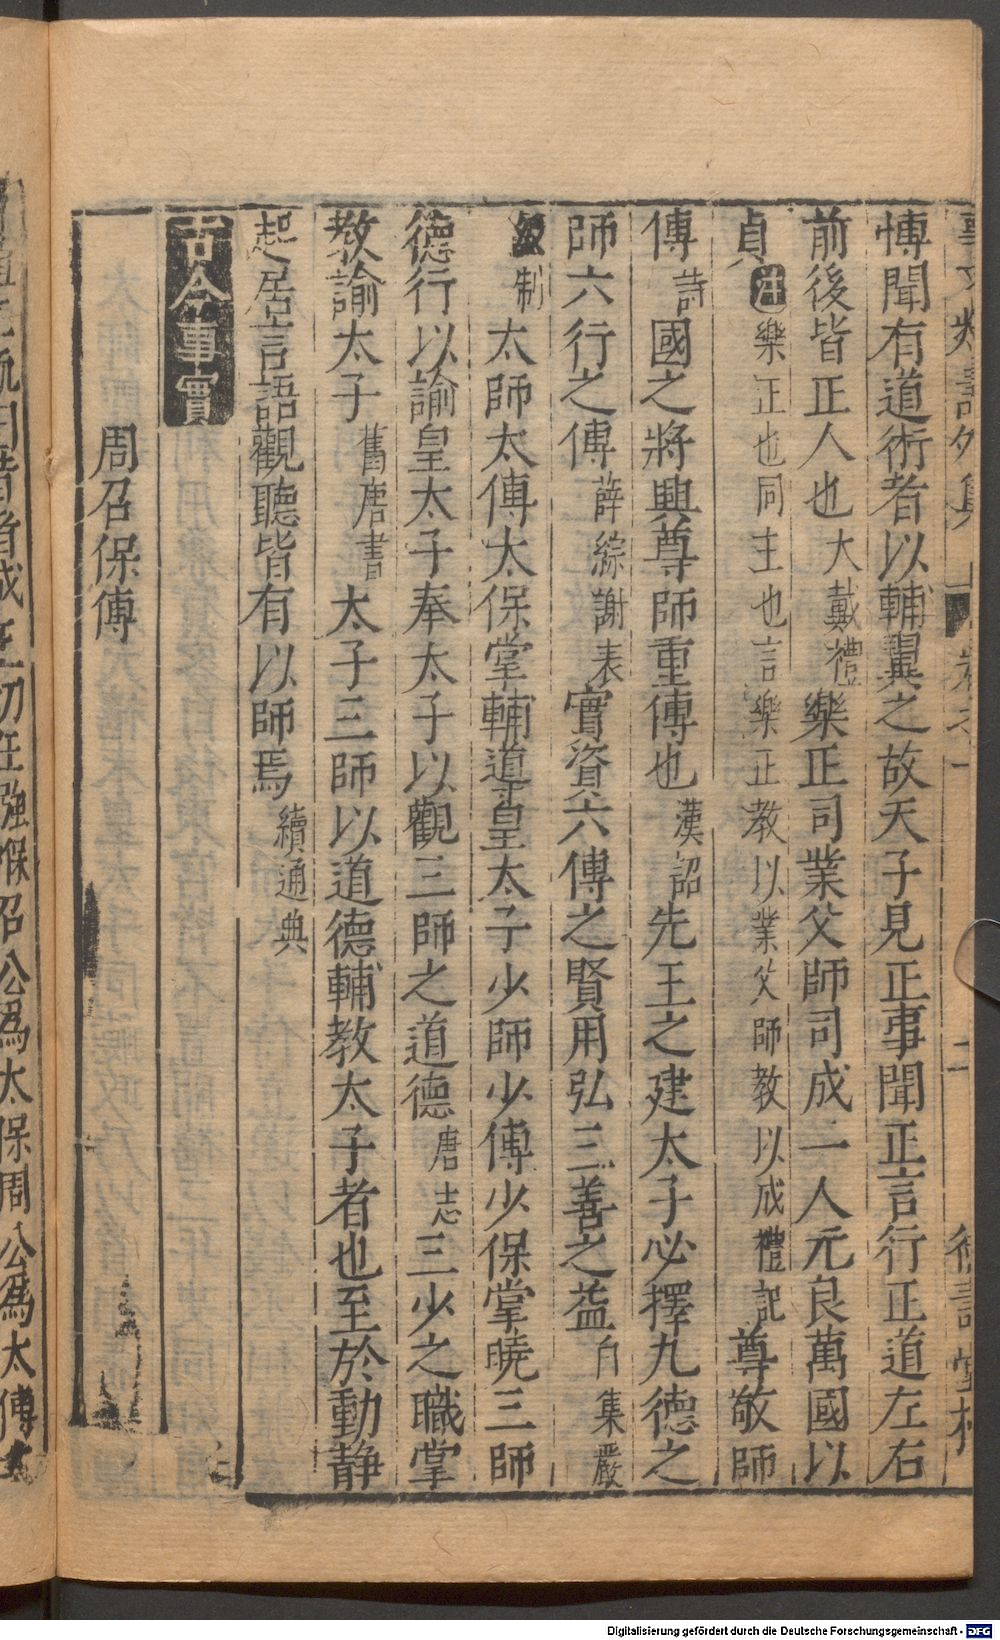 事文類聚外集 卷之一 二 德壽堂梓
愽聞有道術者以輔翼之故天子見正事聞正言行正道左右
前後皆正人也大戴禮樂正司業父師司成一人元良萬國以
貞注樂正也同主也言樂正教以業父師教以成禮記尊敬師
傅詩國之將興尊師重傅也漢詔先王之建太子必擇九德之
師六行之傅薛綜謝表實資六傅之賢用弘三善之益白集嚴
制太師太傅太保掌輔道皇太子少師少傅少保掌曉三師
德行以諭皇太子奉太子以觀三師之道德唐志三少之職掌
教諭太子舊唐書太子三師以道德輔教太子者也至於動静
起居言語觀聽皆有以師焉續通典
古今事實
周召保傅
成王幼在強褓召公爲太保周公爲太傅太
Digitalisierung gefördert durch die Deutsche Forschungsgemeinschaft - DFG